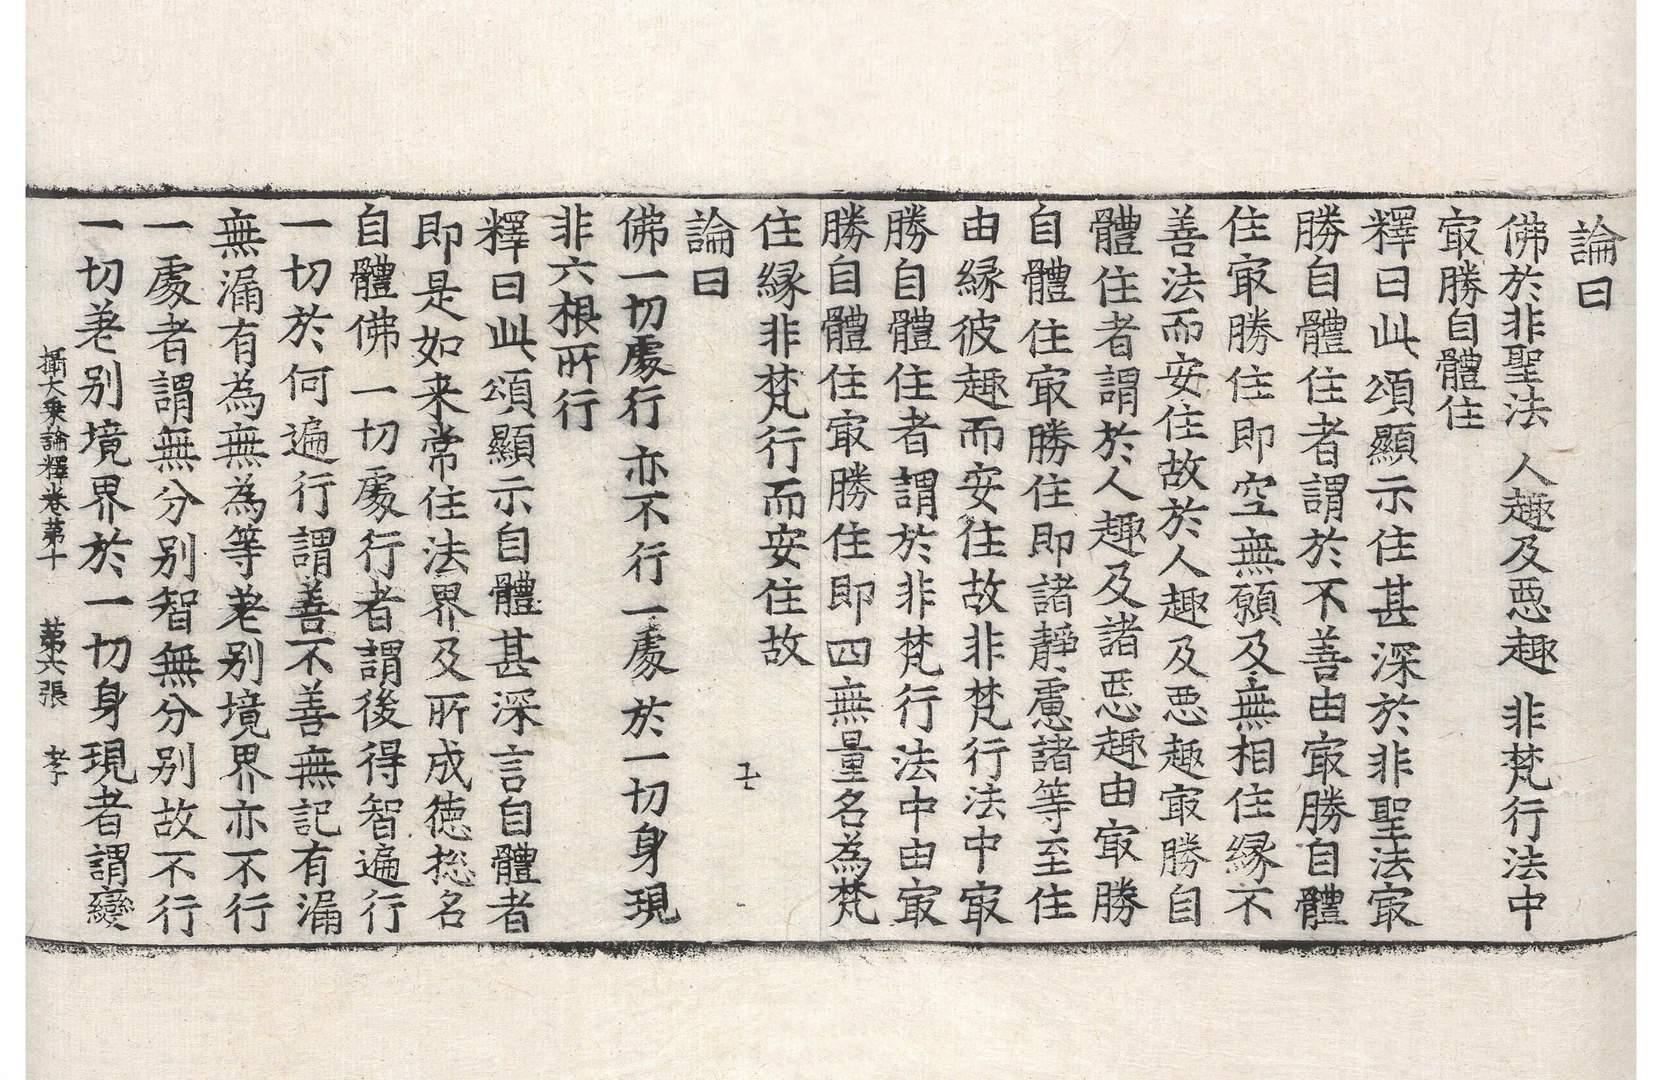 論曰
佛於非聖法　人趣及悪趣　非梵行法中
㝡勝自體住
釋曰此頌顯示住甚深於非聖法㝡
勝自體住者謂於不善由㝡勝自體
住㝡勝住即空無願及無相住緣不
善法而安住故於人趣及悪趣㝡勝自
體住者謂於人趣及諸悪趣由㝡勝
自體住㝡勝住即諸靜慮諸等至住
由緣彼趣而安住故非梵行法中㝡
勝自體住者謂於非梵行法中由㝡
勝自體住㝡勝住即四無量名為梵
住緣非梵行而安住故
論曰
佛一切處行　亦不行一處　於一切身現
非六根所行
釋曰此頌顯示自體甚深言自體者
即是如来常住法界及所成徳惣名
自體佛一切處行者謂後得智遍行
一切於何遍行謂善不善無記有漏
無漏有為無為等差别境界亦不行
一處者謂無分别智無分别故不行
一切差别境界於一切身現者謂變
攝大乘論釋卷第十　第六張　孝